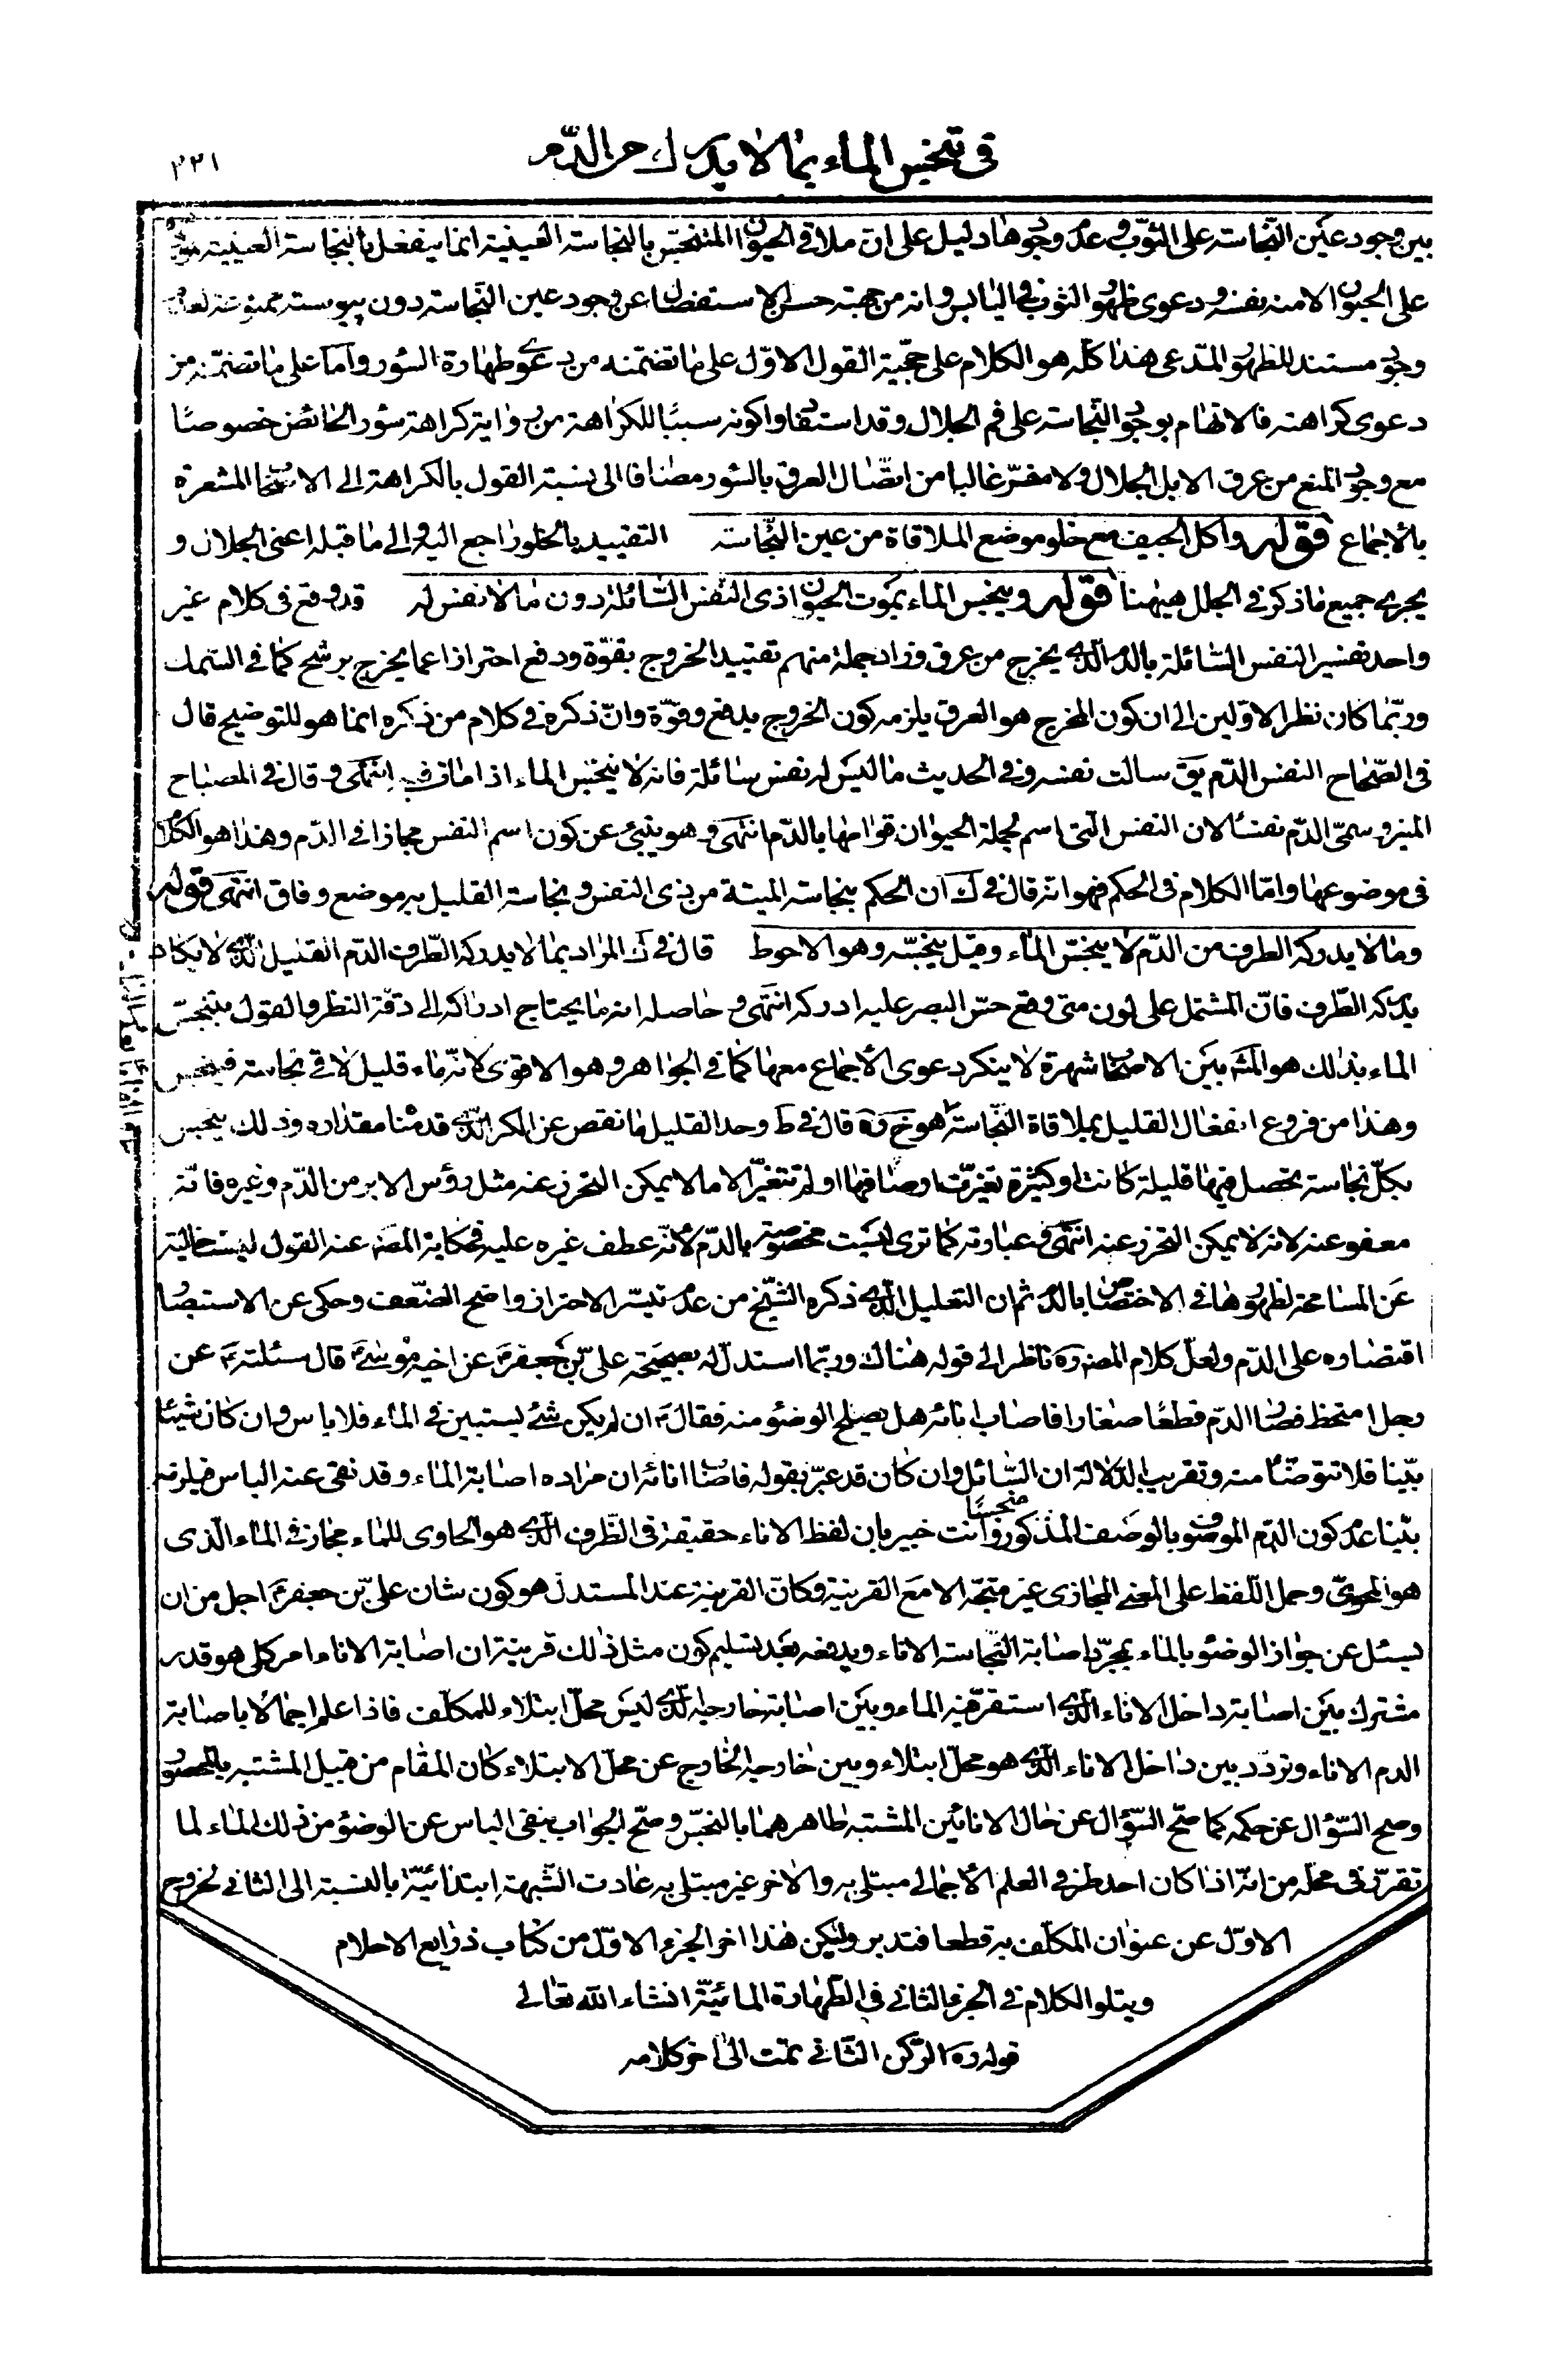 في تنجيس الماء بما لا يدرك من الدّم
٣٢١
بين وجود عين النّجاسته على الثوب و عدم وجودها دليل على انّ ملاقي الحيوان المتنجّس بالنجاسته العينيته انما ينفعل بالنجاسته العينيته
على الحيوان لا منه بنفسه ودعوى ظهور الثوب في اليابس وانه من جهته حسن الاستفصال عن وجود عين النّجاسته دون يبوسته ممنوعته لعدم
وجود مستند للظهور المدّعى هذا كلّه هو الكلام على حجّية القول الاوّل على ما تضمّنه من دعوى طهارة السّؤر وامّا على ما تضمّنه من
دعوى كراهته فالاتهام بوجود النّجاسته على فم الجلال وقد استفادوا كونه سببًا للكراهة من رواية كراهة سؤر الحائض خصوصًا
مع وجود المنع من عرق الابل الجلال ولا مفرّ غالبا من اتّصال العرق بالسّور مضافا الى نسبته القول بالكراهة الى الاصحاب المشعرة
بالاجماع قوله واكل الجيف مع خلو موضع الملاقاة من عين النّجاسته التقييد بالخلو راجع اليه والى ما قبله اعنى الجلال و
يجرى جميع ما ذكر في الجلل هيهنا قوله وينجس الماء بموت الحيوان ذى النفس السّائلة دون ما لا نفس له قد وقع في كلام غير
واحد تفسير النفس السّائلة بالدم الّذى يخرج من عرق وزاد جملة منهم تقييد الخروج بقوّة ودفع احترازا عما يخرج برشح كما في السّمك
وربّما كان نظر الاوّلين الى ان كون المخرج هو العرق يلزمه كون الخروج بدفع وقوّة وانّ ذكره في كلام من ذكره انما هو للتوضيح قال
في الصّحاح النفس الدّم يق سالت نفسه وفي الحديث ما ليس له نفس سائلة فانه لا ينجّس الماء اذا مات فيه انتهى وقال في المصباح
المنير وسمّى الدّم نفسًا لان النفس الّتى اسم لجملة الحيوان قوامها بالدّم انتهى وهو ينبئ عن كون اسم النفس مجازا في الدّم وهذا هو الكلام
في موضوعها وامّا الكلام في الحكم فهو انّه قال في ك ان الحكم بنجاسته الميتة من ذى النفس و نجاسة القليل به موضع وفاق انتهى قوله
وما لا يدركه الطرف من الدّم لا ينجّس الماء وقيل ينجّسه وهو الاحوط قال في ك المراد بما لا يدركه الطّرف الدّم القليل الّذى لا يكاد
يدركه الطّرف فانّ المشتمل على لون متى وقع حسّ البصر عليه ادركه انتهى و حاصله انه ما يحتاج ادراكه الى دقّة النظر والقول بتنجّس
الماء بذلك هو المشه بين الاصحاب شهرة لا ينكر دعوى الاجماع معها كما في الجواهر وهو الاقوى لانّه ماء قليل لاقى نجاسته فينجس
وهذا من فروع انفعال القليل بملاقاة النّجاسته قال في ط وحد القليل ما نقص عن الكر الّذى قدمنا مقداره وذلك ينجس
بكلّ نجاسته تحصل فيها قليلة كانت او كثيرة تغيّرت اوصافها او لم تتغيّر الا ما لا يمكن التحرز عنه مثل رؤس الابر من الدّم وغيره فانّه
معفو عنه لانه لا يمكن التحرز عنه انتهى وعبارته كما ترى ليست مخصوصة بالدّم لانّه عطف غيره عليه فحكاية المصه عنه القول ليست خالية
عن المسامحة لظهورها في الاختصاص بالدم ثم ان التعليل الّذى ذكره الشّيخ من عدم تيسّر الاحتراز واضح الضّعف وحكى عن الاستبصار
اقتصاره على الدّم ولعلّ كلام المصه ره ناظر الى قوله هناك وربّما استدلّ له بصحيحة علىّ بن جعفر ع عن اخيه موسى ع قال سئلته ع عن
رجل امتخط فصار الدّم قطعًا صغارا فاصاب انائه هل يصلح الوضوء منه فقال ع ان لم يكن شئ يستبين في الماء فلا باس وان كان شيئا
بيّنا فلا تتوضّأ منه وتقريب الدّلالة ان السّائل وان كان قد عبّر بقوله فاصاب انائه ان مراده اصابة الماء وقد نفى عنه الباس فيلزمه
بيّنا عدم كون الدّم الموصوف بالوصف المذكور منجسًا وانت خبير بان لفظ الاناء حقيقة في الظّرف الّذى هو الحاوى للماء مجاز في الماء الّذى
هو المحوىّ وحمل اللّفظ على المعنى المجازى غير متجّه الا مع القرينة وكانّ القرينة عند المستدل هو كون شان علىّ بن جعفر ع اجل من ان
يسئل عن جواز الوضوء بالماء بمجرّد اصابة النّجاسته الاناء ويدفعه بعد تسليم كون مثل ذلك قرينة ان اصابة الاناء امر كلى هو قدر
مشترك بين اصابة داخل الاناء الّذى استقرّ فيه الماء وبين اصابة خارجه الّذى ليس محلّ ابتلاء للمكلّف فاذا علم اجمالا باصابة
الدم الاناء وتردّد بين داخل الاناء الّذى هو محلّ ابتلاء وبين خارجه الخارج عن محلّ الابتلاء كان المقام من قبيل المشتبه بالمحصور
وصح السّؤال عن حكمه كما صحّ السّؤال عن حال الانائين المشتبه طاهرهما بالنجس وصحّ الجواب بنفى الباس عن الوضوء من ذلك الماء لما
تقرّر في محله من انّه اذا كان احد طرفى العلم الاجمالى مبتلى به والاخر غير مبتلى به عادت الشّبهة ابتدائيّة بالنسبته الى الثانى لخروج
الاوّل عن عنوان المكلّف به قطعا فتدبر وليكن هذا اخر الجزء الاوّل من كتاب ذرايع الاحلام
ويتلو الكلام في الجزء الثاني في الطّهارة المائيّة انشاء الله تعالى
قوله ره الرّكن الثّانى تمّت الى اخر كلامه